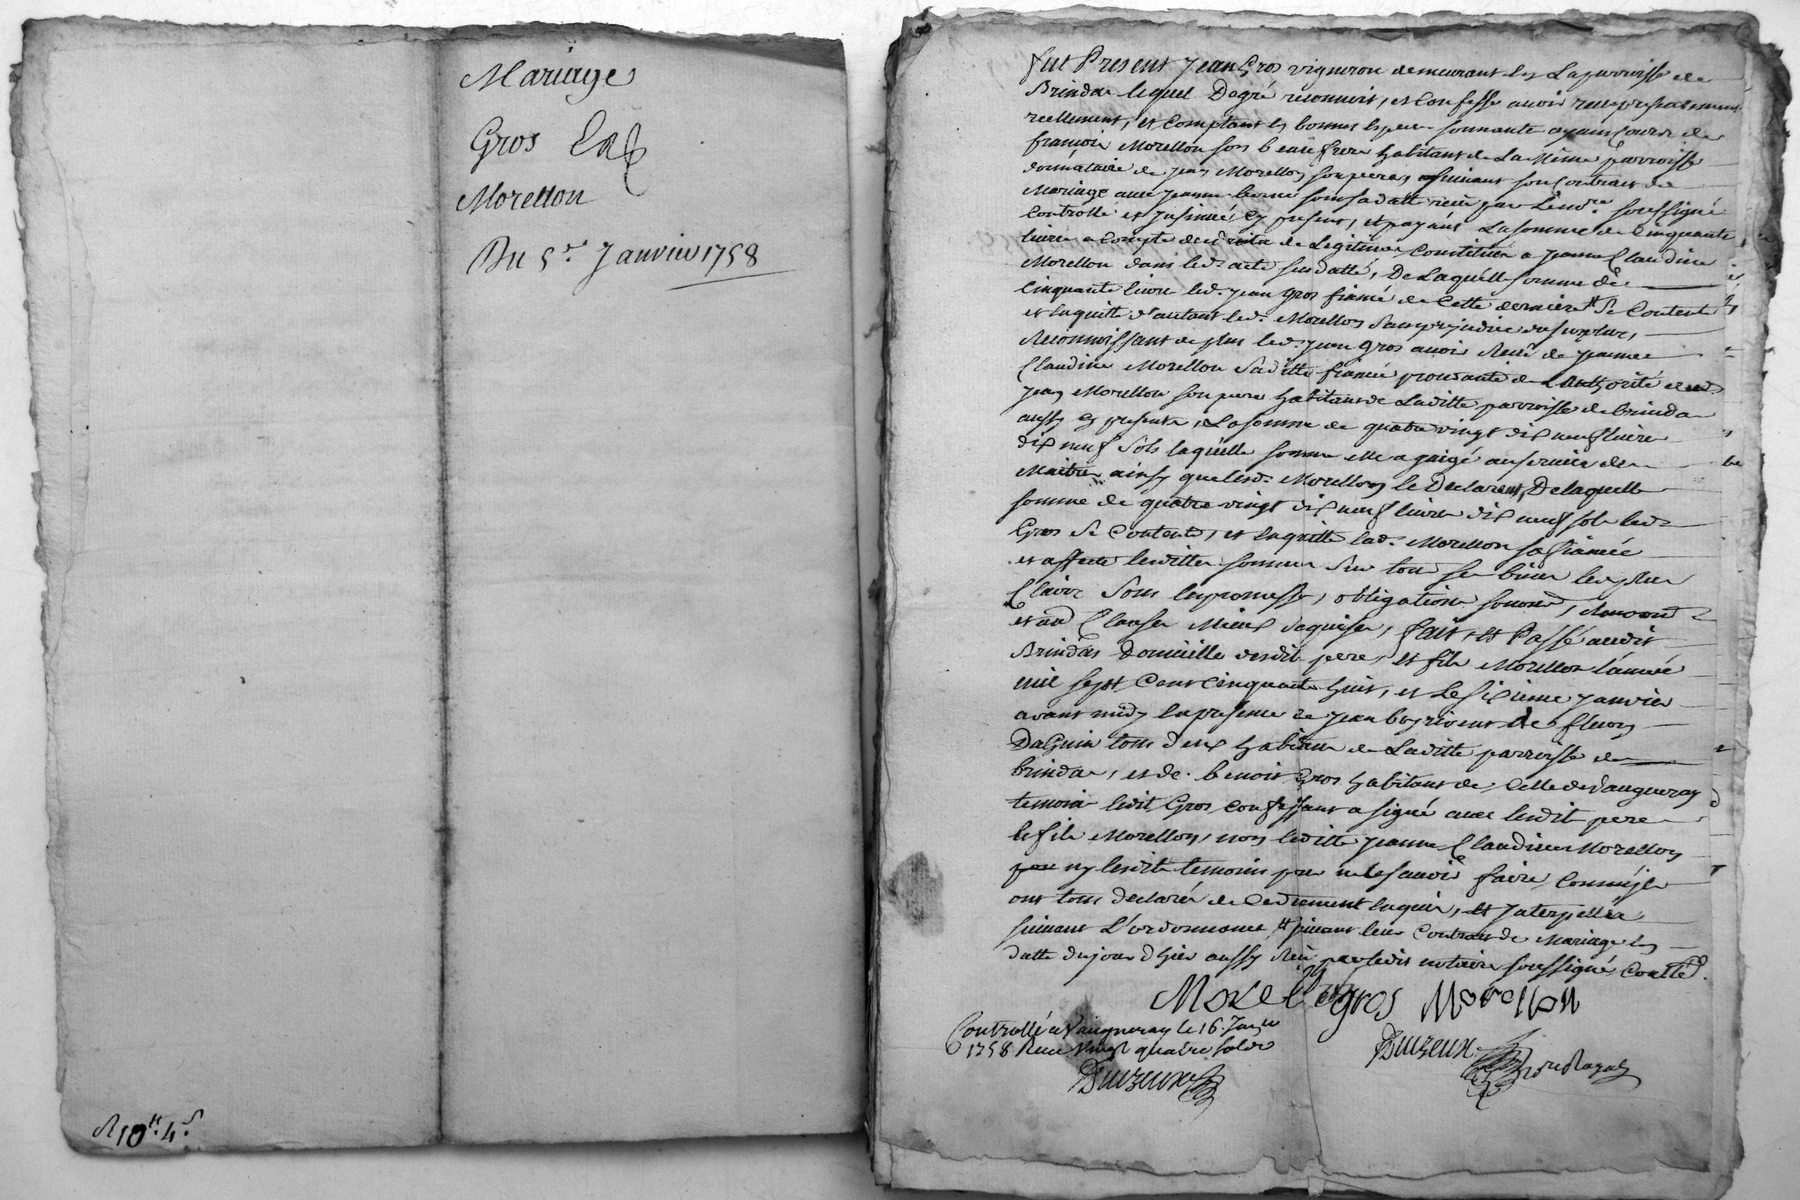 Mariage
Gros Et
Morellon
Du 5.re Janvier 1758
R 10tt. 4s
fut Present Jean Gros vigneron demeurant en La parroisse de
Brindas lequel Degré reconnoit, et Confesse avoir reçu presentement
reellement, et Comptant en bonnes especes sonnante ayant Cours de
françois Morellon son beaufrere habitant de La Même parroisse
donnataire de jean Morellon son pere, suivant son Contrat de
Mariage avec jeanne berne son sa datte reçu par Le nore. soussigné
Controllé et Jnsinué, cy present, et payant La somme de Cinquante
livres a Compte de droits de Legitime Constitués a jeanne Claudine
Morellon dans led. acte susdatté, De Laquelle somme de
Cinquante livres led. jean gros fiancé de Cette derniere Se Contente
et en quitte d'autant led. Morellon sans prejudice du surplus,
Reconnoissant de plus led. jean gros avoir Reçu de jeanne
Claudine Morellon Saditte fiancée procedante de L'authorité dud.
jean Morellon son pere habitant de Laditte parroisse de brindas
aussy cy present, La somme de quatre vingt dix neuf livres
dix neuf sols laquelle somme elle a gaigé au service de
Maitres ainsy que lesd. Morellon le Declarent, De laquelle
somme de quatre vingt dix neuf livres dix neuf sols led.
Gros Se Contente, et en quitte lad. Morellon sa fiancée
et affecte lesdittes sommes Sur tous ses biens les plus
Clairs Sous les promesses, obligations soumon, Renoon
et aud Clauses Mieux Requises, fait, et Passé audit
Brindas Domicille desdits pere, et fils Morellon L'année
mil sept Cent Cinquante huit, et Le Sixieme janvier
avant midy En presence de jean boyrivent de fleury
DaGuin tous deux habitans de Laditte parroisse de
brindas, et de benoit Gros habitant de Celle de Vaugneray
temoins ledit Gros Confessant a signé avec lesdits pere
et fils Morellon, non laditte jeanne Claudine Morellon
ny lesdits temoins pour ne le savoir faire, Comme ils
ont tous declarés de Ce dûement enquis, et Jnterpellés
suivant L'ordonnance suivant leur Contrat de Mariage en
datte du jour d'hier aussy Reçu par ledit notaire soussigné
Morellon gros Morellon
Controllé a Vaugneray le 16. Janer
1758 Reçu Vingt quatre sols